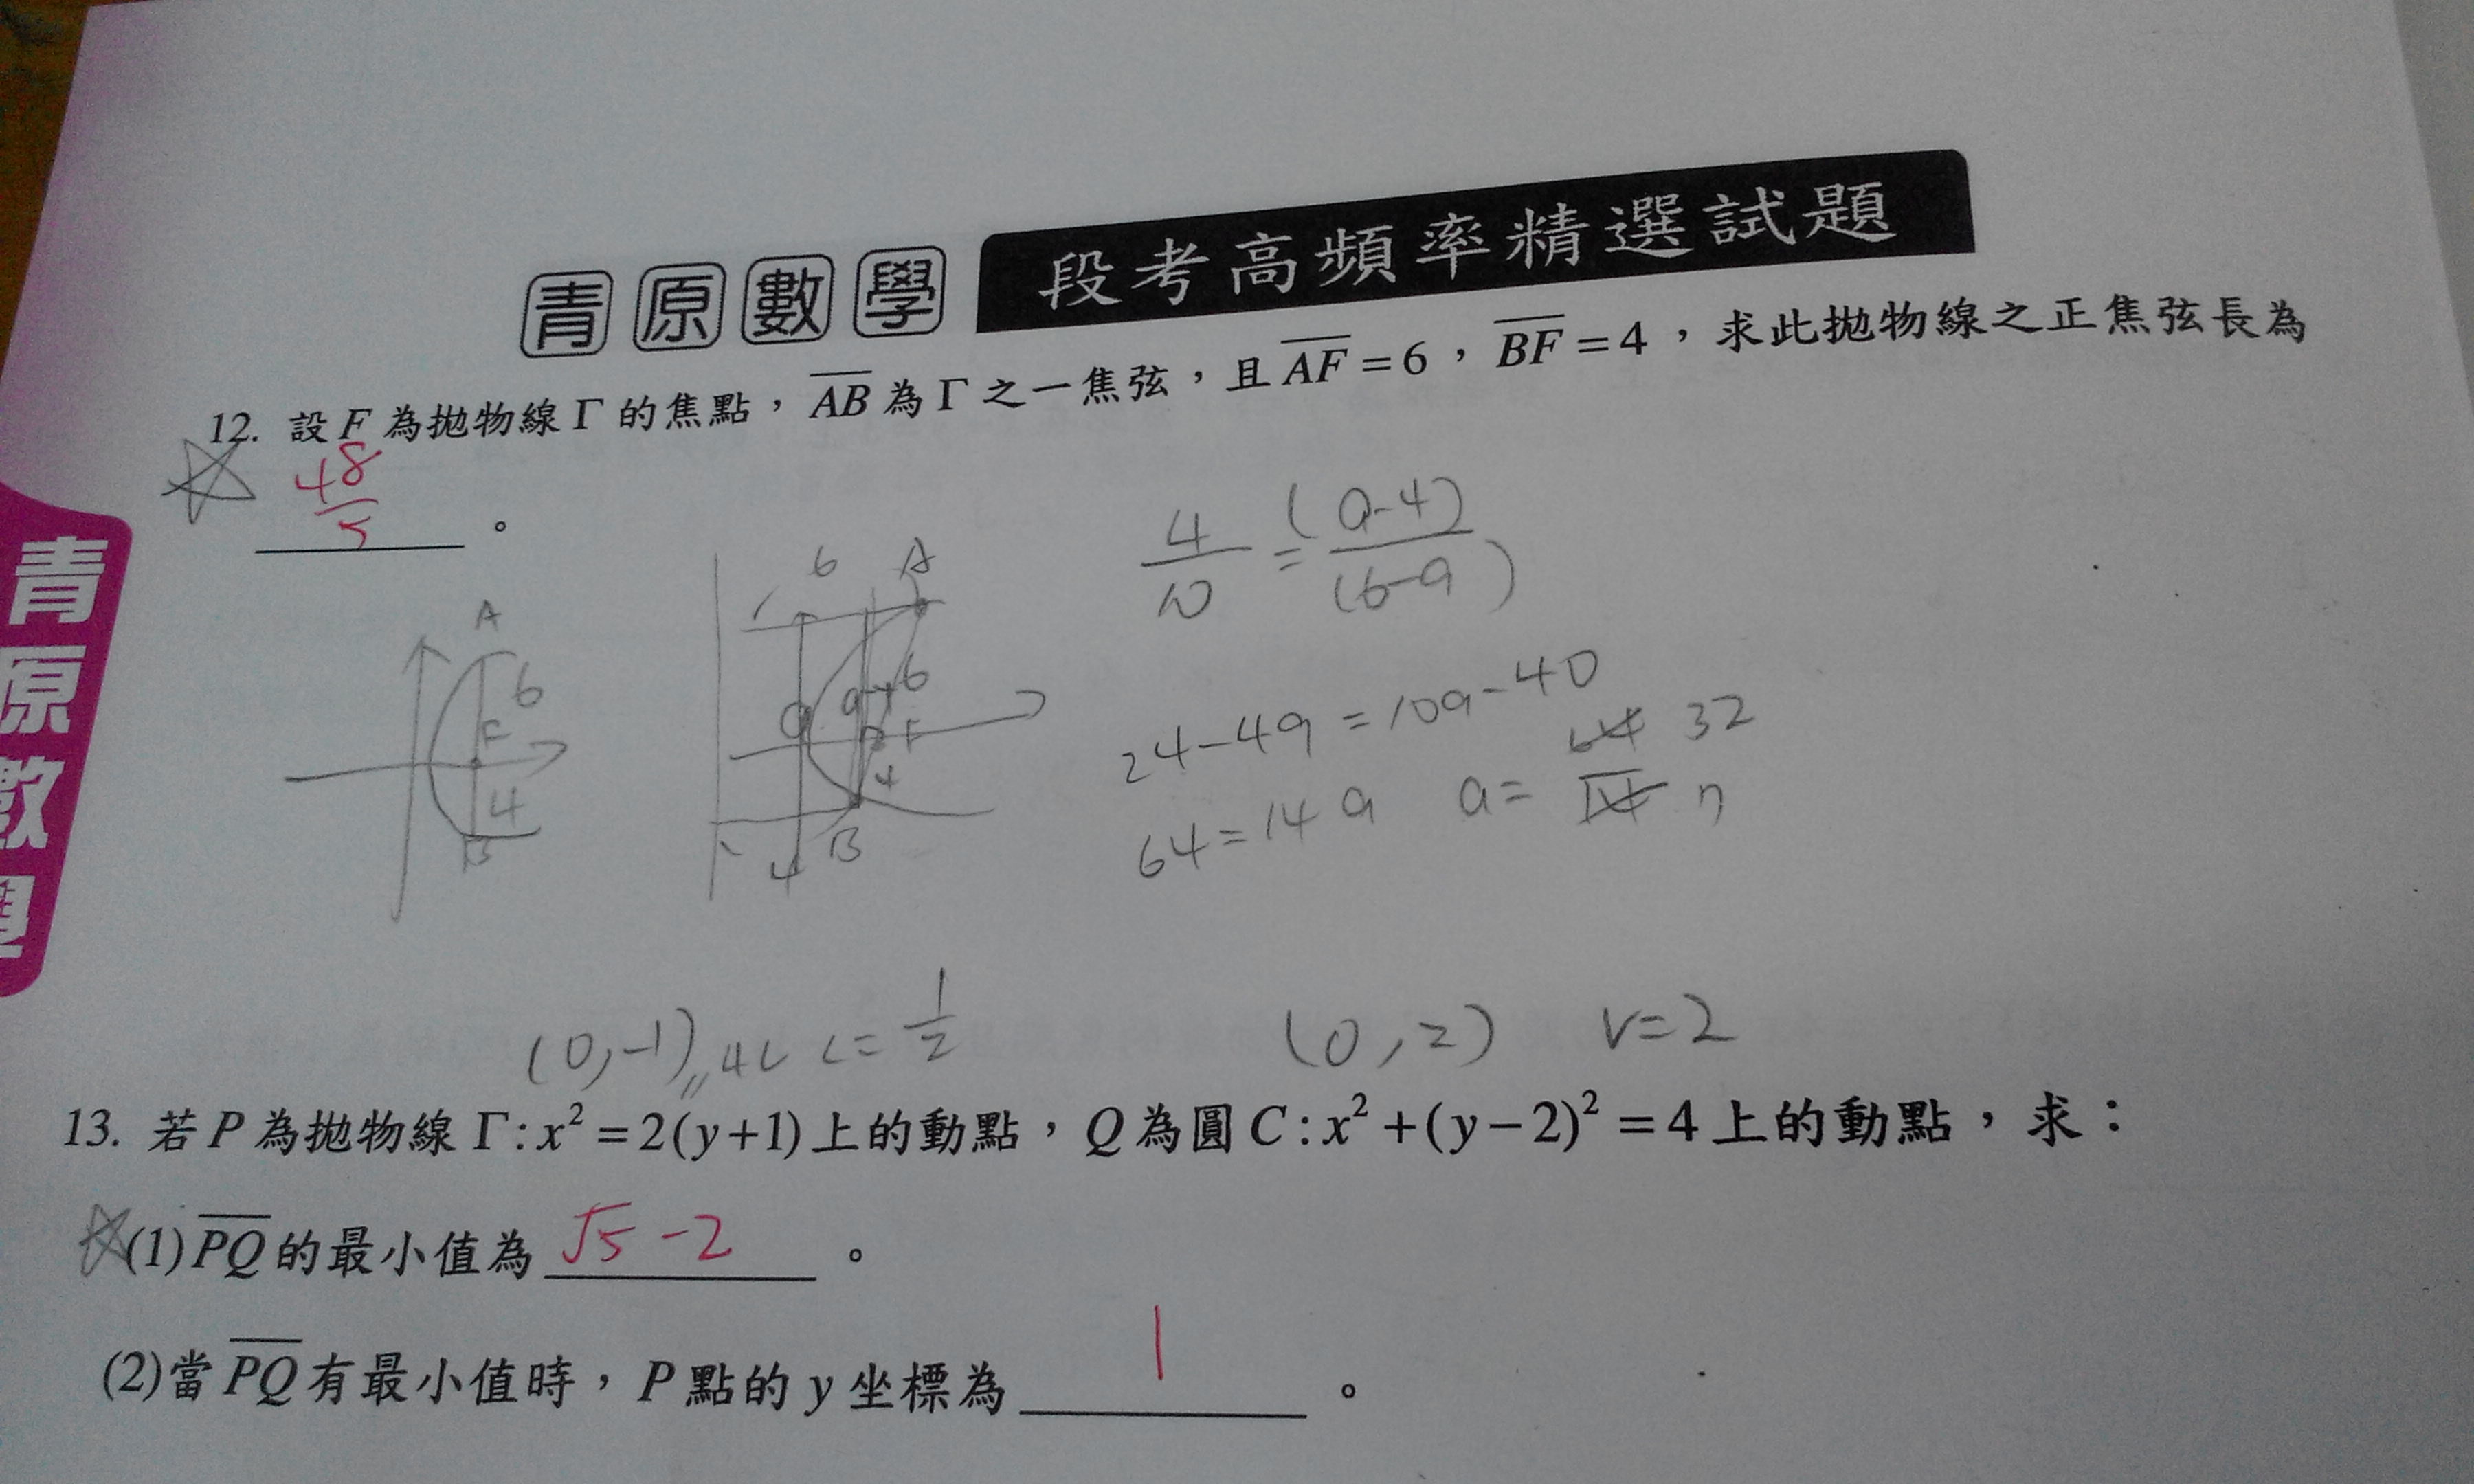 青原數學 段考高頻率精選試題
12. 設 F 為拋物線 Γ 的焦點，AB 為 Γ 之一焦弦，且 AF = 6，BF = 4，求此拋物線之正焦弦長為
48/5 。
4/10 = (a-4)/(6-a)
6 A
A
6
6
F
a
a-4
F
4
4
B
4
B
24-4a = 10a-40
64 = 14a a = 64/14 32/7
(0,-1) 4c c = 1/2 (0,2) r=2
13. 若 P 為拋物線 Γ : x² = 2(y+1) 上的動點，Q 為圓 C : x² + (y-2)² = 4 上的動點，求：
(1) PQ 的最小值為 √5 -2 。
(2) 當 PQ 有最小值時，P 點的 y 坐標為 1 。
青原數學